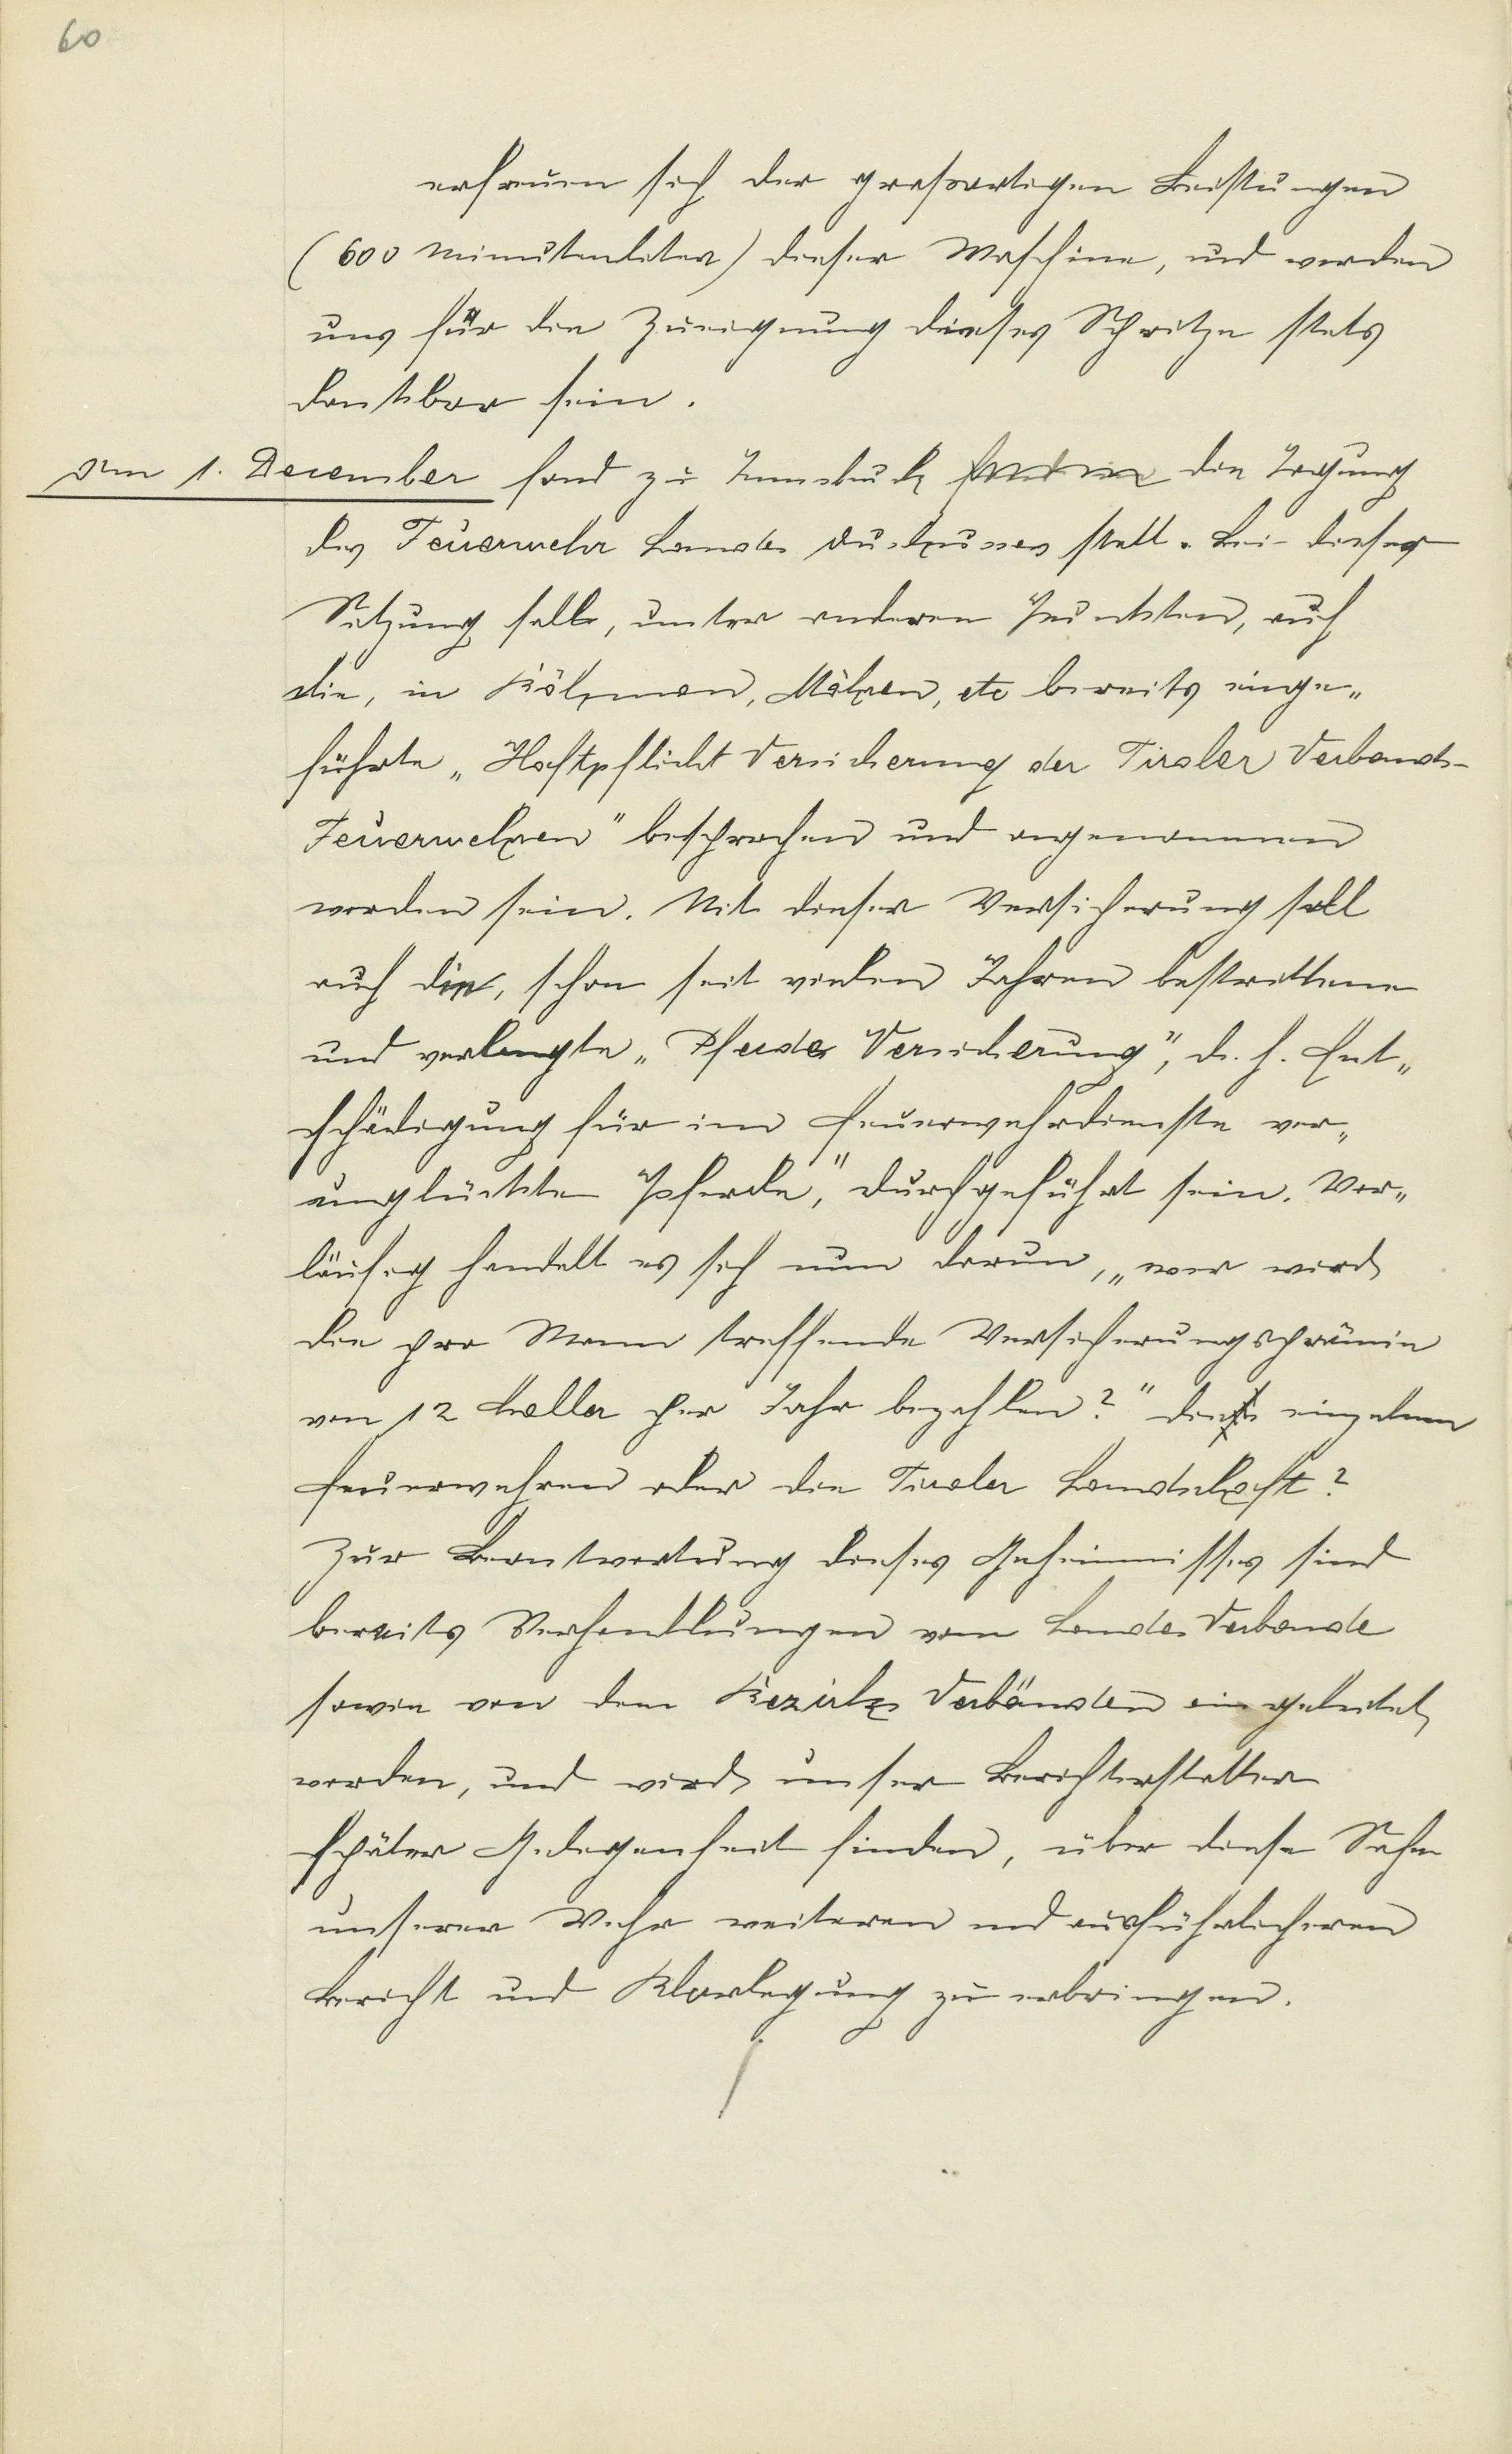 60
erfreuen sich der grossartigen Leistungen
(600 Minutenliter) dieser Maschine, und werden
uns für die Zueignung dieses Spritze stets
dankbar sein.
Am 1. December fand zu Innsbruck die Tagung
des Feuerwehr Landes Ausschusses statt. Bei dieser
Sitzung solle, unter anderen Punkten, auch
die, in Böhmen, Mähren, etc bereits einge„
führte „Haftpflicht Versicherung der Tiroler Verbands-
Feuerwehren" besprochen und angenommen
worden sein. Mit dieser Versicherung soll
auch die, schon seit vielen Jahren bestrittene
und verlangte „Pferde Versicherung", d. h. Ent„
schädigung für im Feuerwehrdienste ver„
unglückte Pferde," durchgeführt sein. Vor„
läufig handelt es sich nun darum, „wer wird
die pro Mann treffende Versicherungsprämie
von 12 Heller per Jahr bezahlen?" die einzelnen
Feuerwehren oder die Tiroler Landschaft?
Zur Beantwortung dieses Geheimnisses sind
bereits Verhandlungen vom Landes Verbande
sowie von den Bezirks Verbänden eingeleitet
worden, und wird unser Berichterstatter
später Gelegenheit finden, über diese Sache
unserer Wehr weiteren und ausführlicheren
Bericht und Klarlegung zu erbringen.